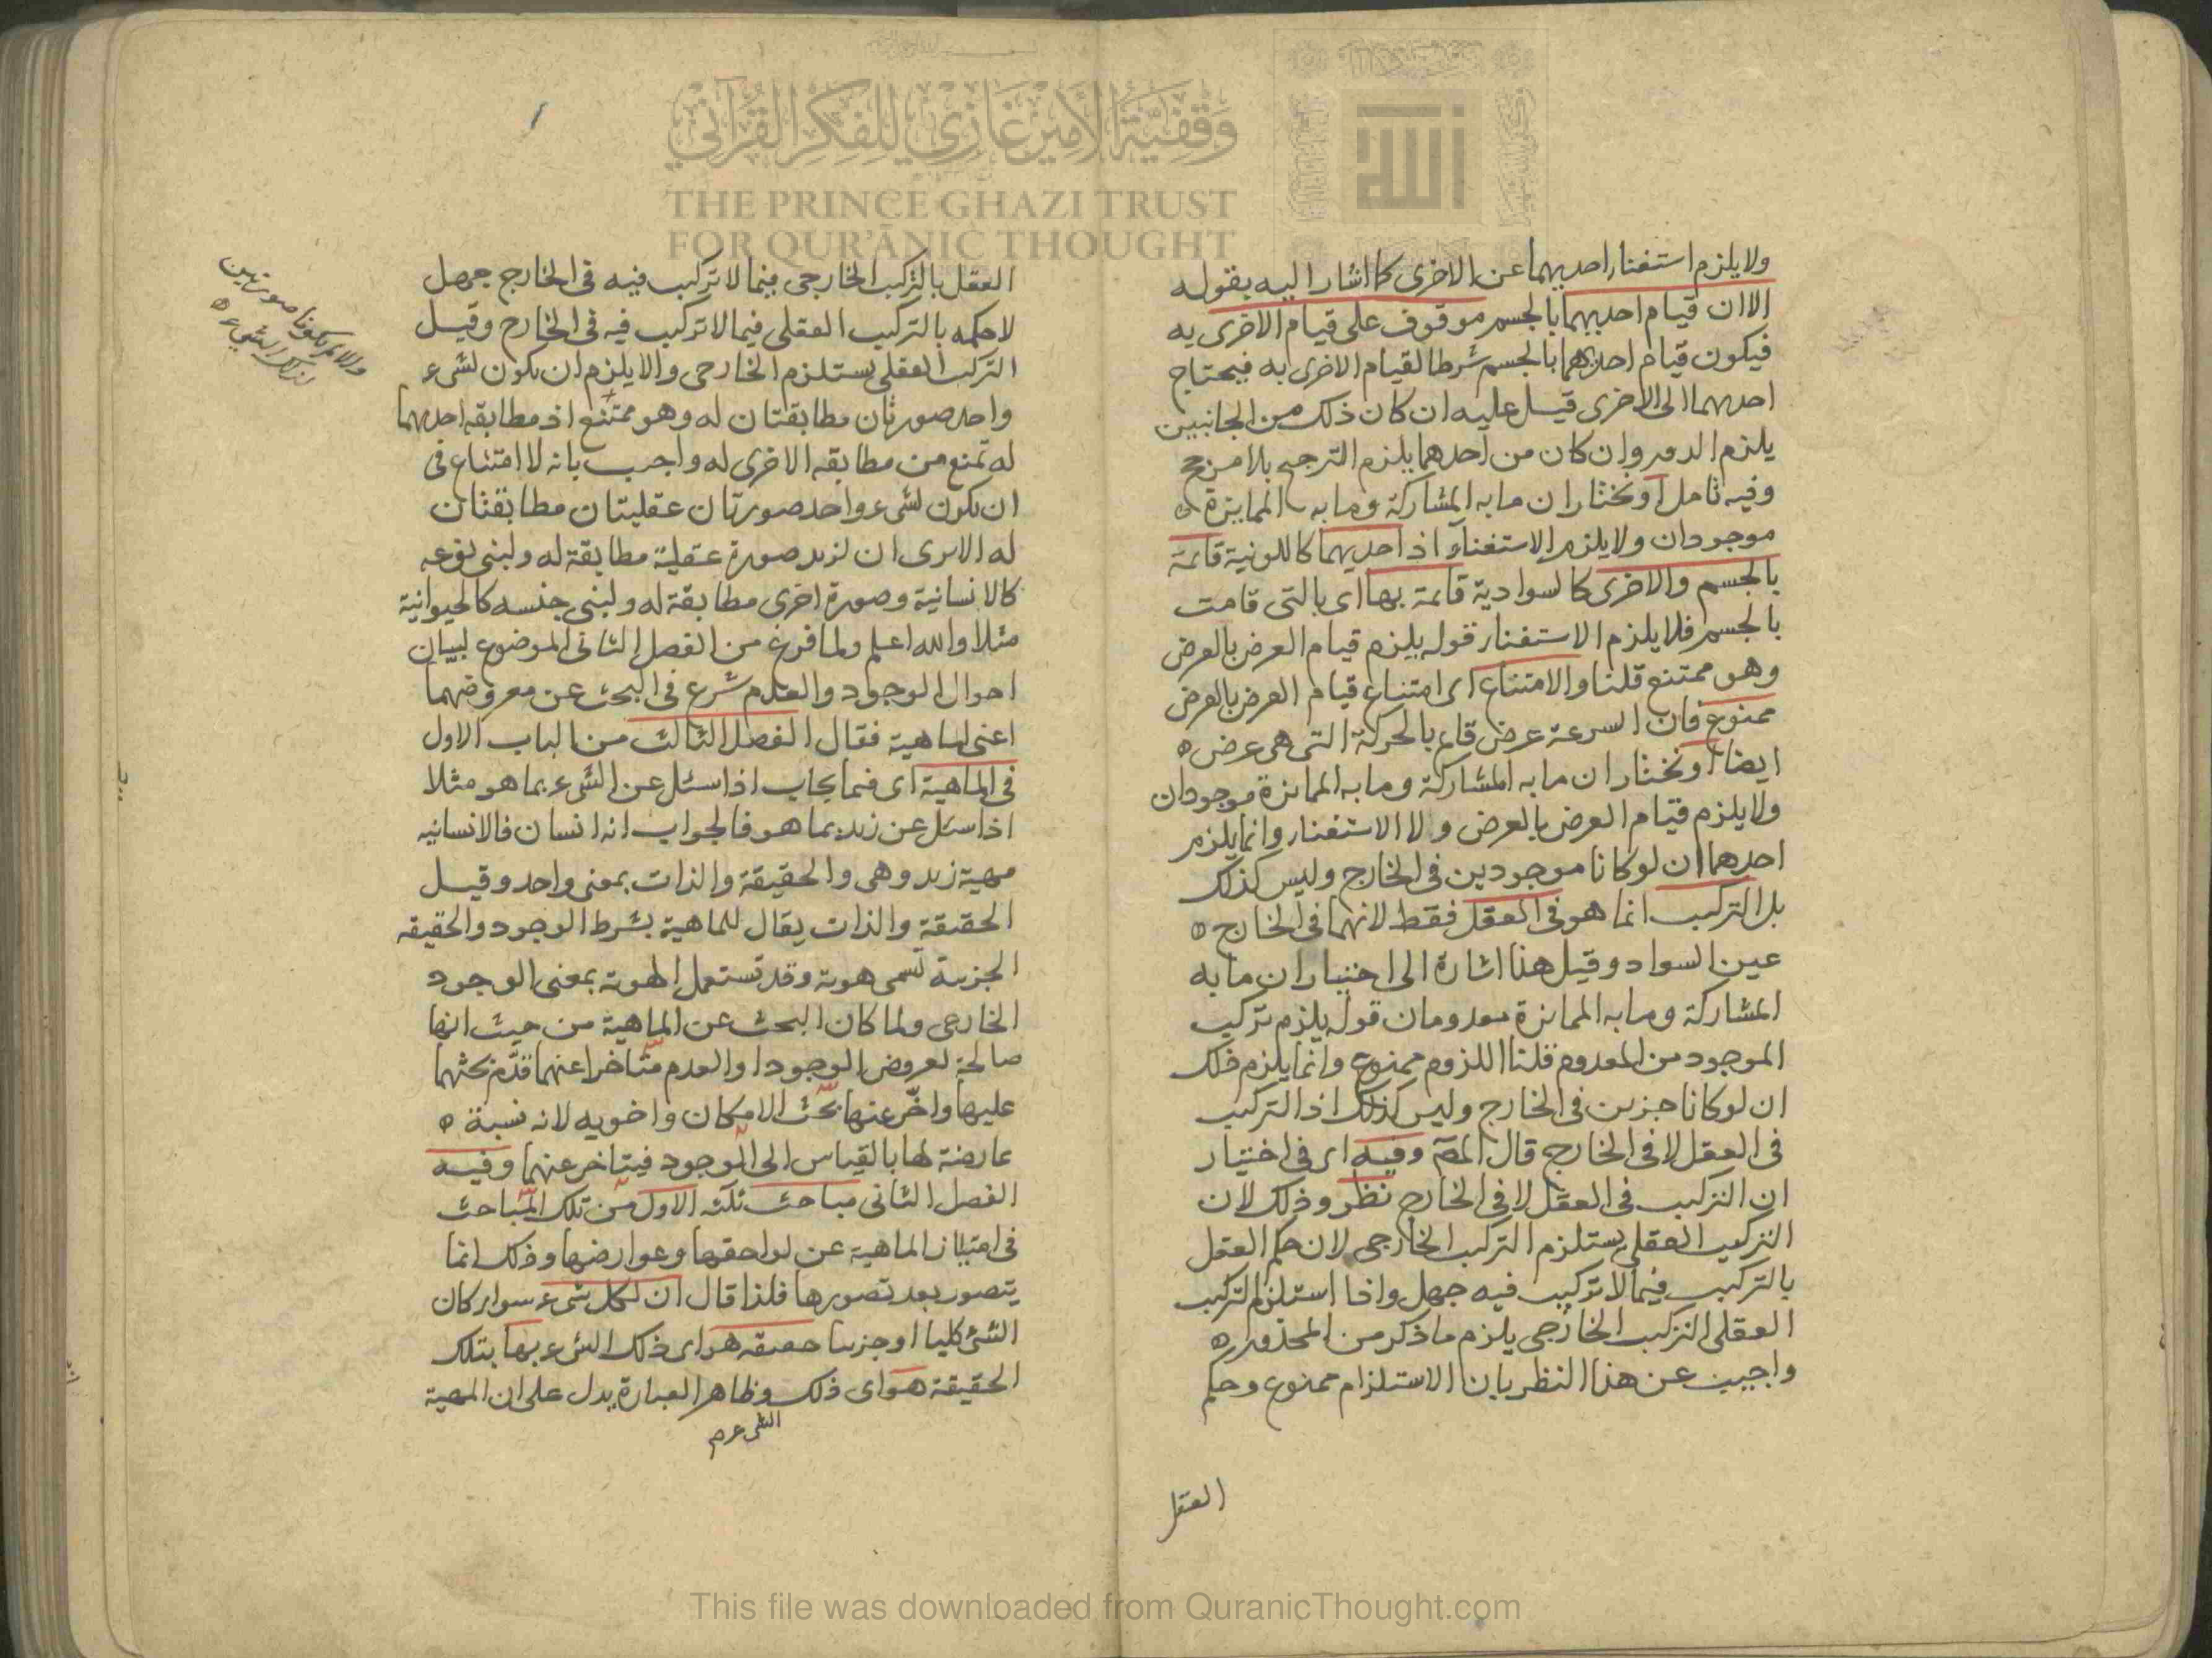 وقفية الأمير غازي للفكر القرآني
THE PRINCE GHAZI TRUST
FOR QUR'ĀNIC THOUGHT
ولا يلزم استغناء احديهما عن الاخرى كما اشار اليه بقوله
الا ان قيام احديهما بالجسم موقوف على قيام الاخرى به
فيكون قيام احديهما بالجسم شرطا لقيام الاخرى به فيحتاج
احديهما الى الاخرى قيل عليه ان كان ذلك من الجانبين
يلزم الدور وان كان من احدهما يلزم الترجيح بلا مرجح
وفيه تامل او نختار ان ما به المشاركة وما به الممايزة
موجودان ولا يلزم الاستغناء اذ احديهما كاللونية قائمة
بالجسم والاخرى كالسوادية قائمة بها اى بالتى قامت
بالجسم فلا يلزم الاستغناء قوله يلزم قيام العرض بالعرض
وهو ممتنع قلنا والامتناع اى امتناع قيام العرض بالعرض
ممنوع فان السرعة عرض قايم بالحركة التى هى عرض
ايضا او نختار ان ما به المشاركة وما به الممايزة موجودان
ولا يلزم قيام العرض بالعرض ولا الاستغناء وانما يلزم
احدهما ان لو كانا موجودين فى الخارج وليس كذلك
بل التركيب انما هو فى العقل فقط لانهما فى الخارج
عين السواد وقيل هذا اشارة الى اختيار ان ما به
المشاركة وما به الممايزة معدومان قوله يلزم تركيب
الموجود من المعدوم قلنا اللزوم ممنوع وانما يلزم ذلك
ان لو كانا جزئين فى الخارج وليس كذلك اذ التركيب
فى العقل لا فى الخارج قال المص وفيه اى فى اختيار
ان التركيب فى العقل لا فى الخارج نظر وذلك لان
التركيب العقلى يستلزم التركيب الخارجى لان حكم العقل
بالتركيب فيما لا تركيب فيه جهل واذا استلزم التركيب
العقلى التركيب الخارجى يلزم ما ذكر من المحذور
واجيب عن هذا النظر بان الاستلزام ممنوع وحكم
العقل
العقل بالتركيب الخارجى فيما لا تركيب فيه فى الخارج جهل
لا حكمه بالتركيب العقلى فيما لا تركيب فيه فى الخارج وقيل
التركيب العقلى يستلزم الخارجى والا يلزم ان يكون لشىء
واحد صورتان مطابقتان له وهو ممتنع اذ مطابقة احديهما
له تمنع من مطابقة الاخرى له واجيب بانه لا امتناع فى
ان يكون لشىء واحد صورتان عقليتان مطابقتان
له الا يرى ان لزيد صورة عقلية مطابقة له ولبنى نوعه
كالانسانية وصورة اخرى مطابقة له ولبنى جنسه كالحيوانية
مثلا والله اعلم ولما فرغ من الفصل الثانى الموضوع لبيان
احوال الوجود والعدم شرع فى البحث عن معروضهما
اعنى الماهية فقال الفصل الثالث من الباب الاول
فى الماهية اى فيما يجاب اذا سئل عن الشىء بما هو مثلا
اذا سئل عن زيد بما هو فالجواب انه انسان فالانسانية
مهية زيد وهى والحقيقة والذات بمعنى واحد وقيل
الحقيقة والذات يقال للماهية بشرط الوجود والحقيقة
الجزئية تسمى هوية وقد تستعمل الهوية بمعنى الوجود
الخارجى ولما كان البحث عن الماهية من حيث انها
صالحة لعروض الوجود او العدم متاخرا عنهما قدم بحثهما
عليها واخر عنها بحث الامكان واخويه لانه نسبة
عارضة لها بالقياس الى الوجود فيتاخر عنهما وفيه
الفصل الثانى مباحث ثلثة الاول من تلك المباحث
فى امتياز الماهية عن لواحقها وعوارضها وذلك انما
يتصور بعد تصورها فلذا قال ان لكل شىء سواء كان
الشئ كليا او جزئيا حقيقة هو اى ذلك الشىء بها بتلك
الحقيقة هو اى ذلك وظاهر العبارة يدل على ان المهية
الشىء صح
والا لم يكونا صورتين
لذلك الشىء
This file was downloaded from QuranicThought.com